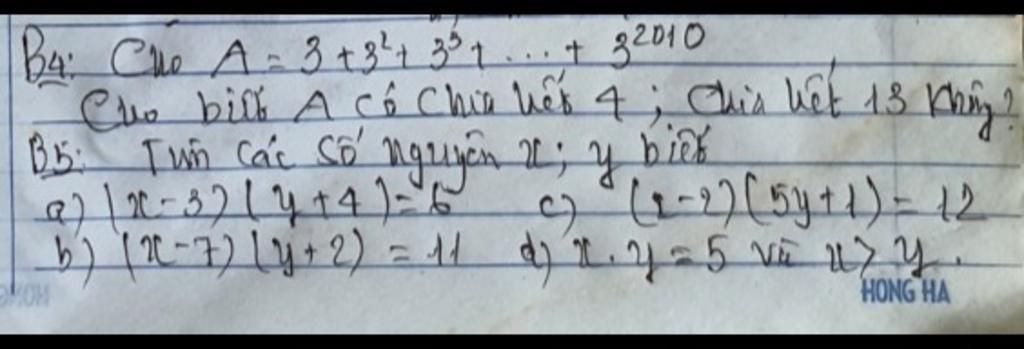 B4: Cho A = 3 + 3² + 3³ + ... + 3²⁰¹⁰
Cho biết A có chia hết 4 ; chia hết 13 không?
B5: Tìm các số nguyên x; y biết
a) (x-3)(y+4)=6 c) (x-2)(5y+1) = 12
b) (x-7)(y+2) = 11 d) x.y = 5 và x > y.
HONG HA